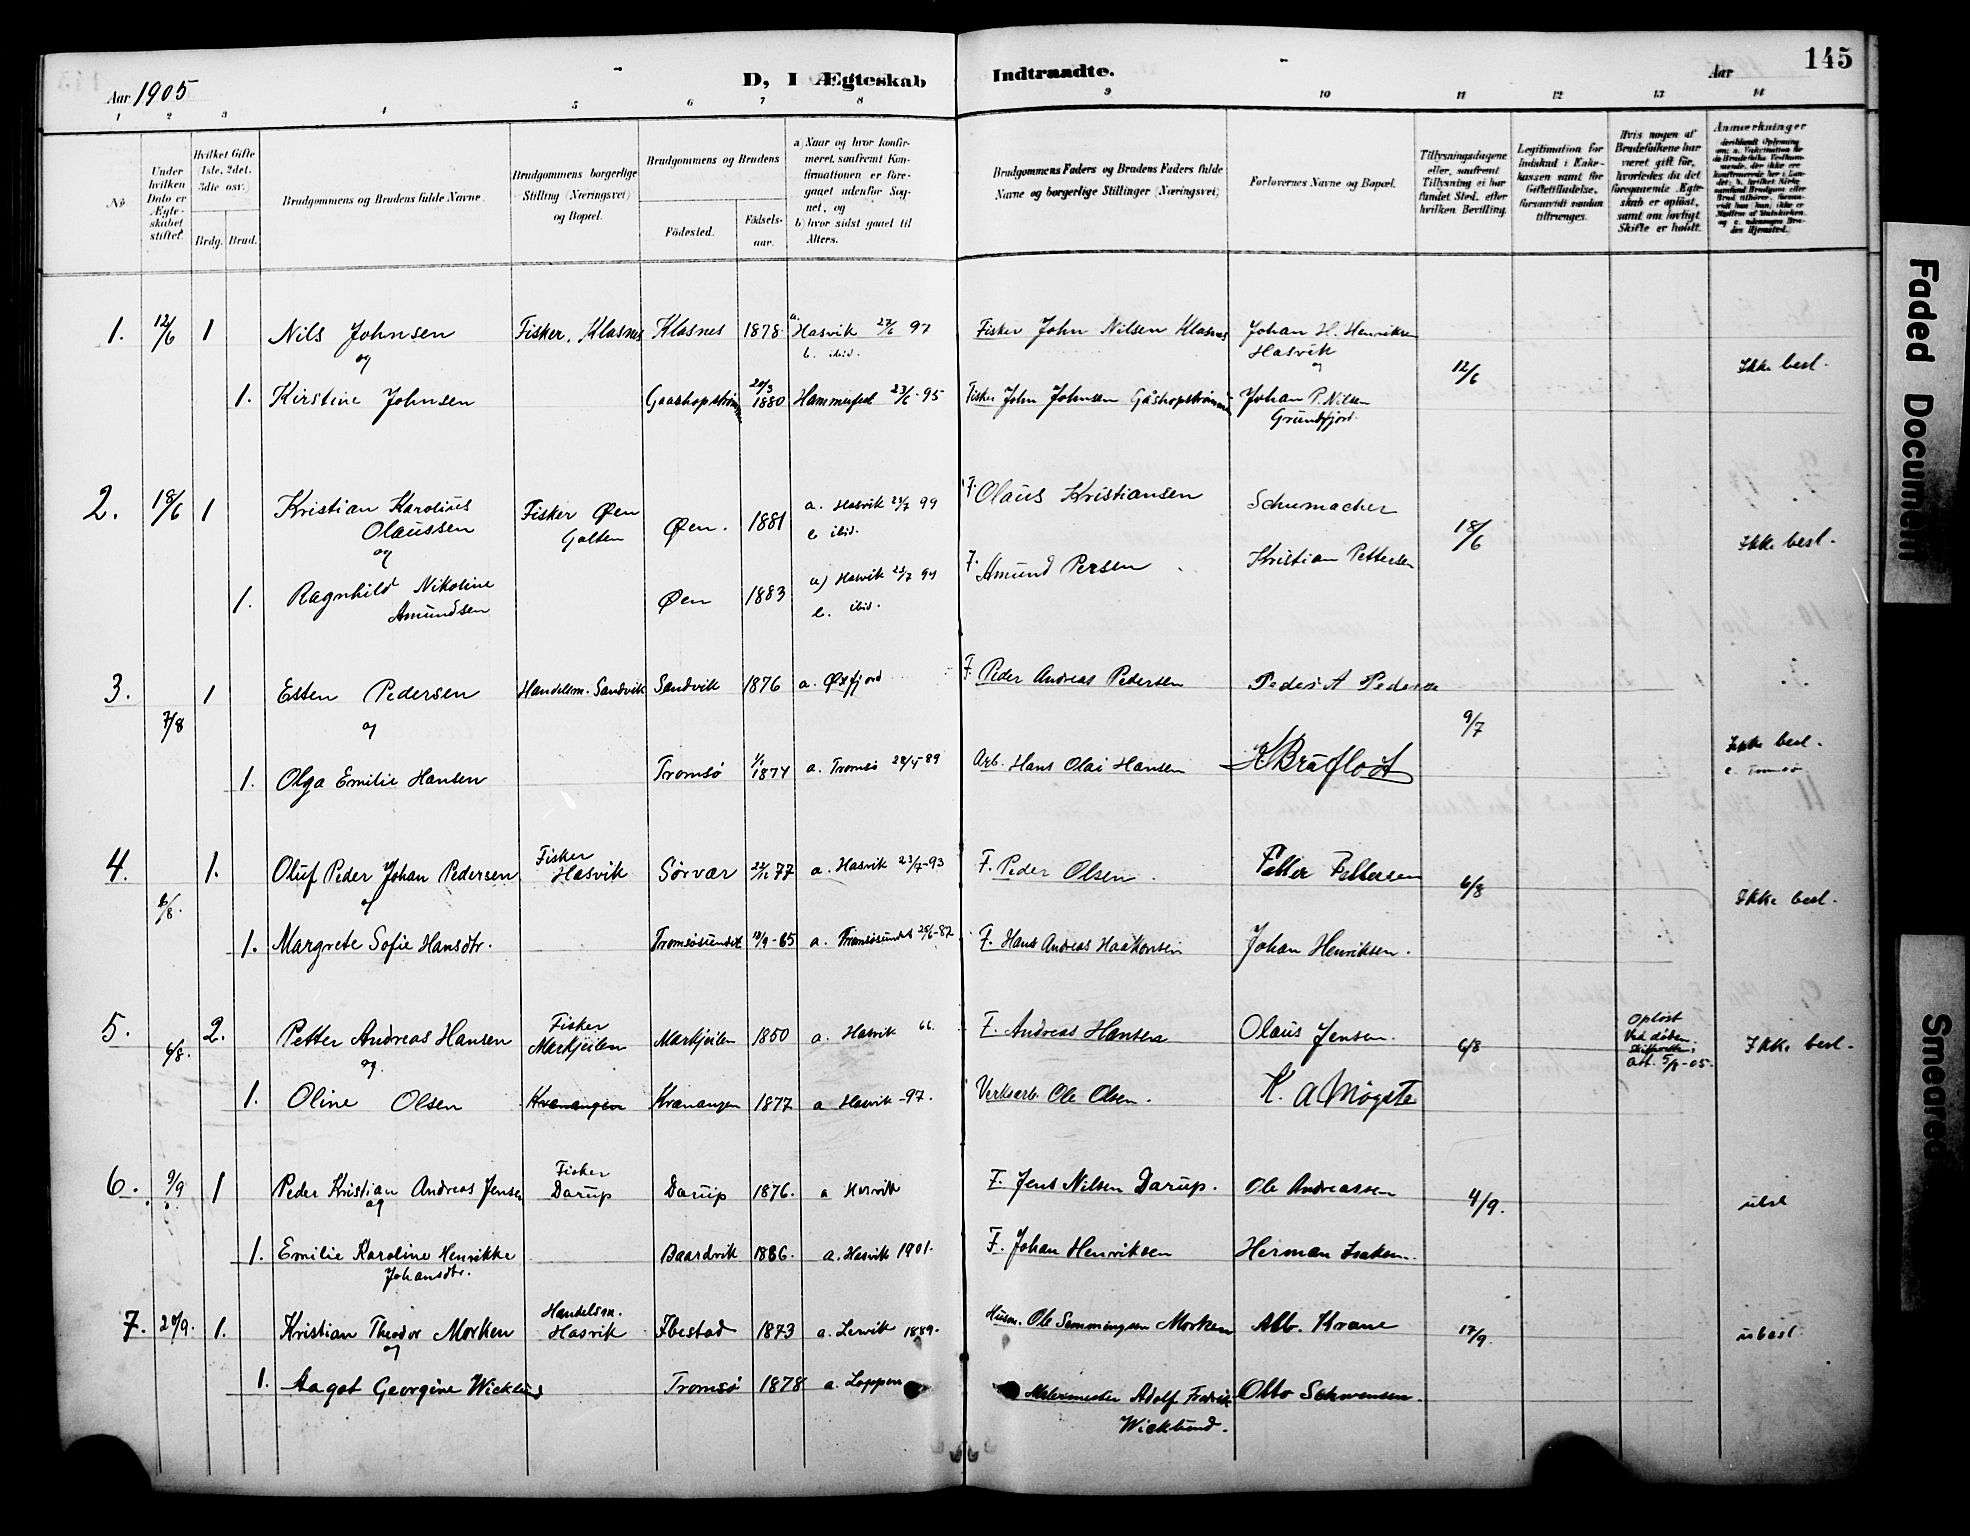 145
Aar 1905
D, I Ægteskab Indtraadte.
Aar
1 2 3 4 5 6 7 8 9 10 11 12 13 14
No.
Under hvilken Dato er Ægteskabet stiftet.
Hvilket Gifte (1ste, 2det, 3die osv.)
Brdg. Brud.
Brudgommens og Brudens fulde Navne.
Brudgommens borgerlige Stilling (Næringsvei) og Bopæl.
Brudgommens og Brudens
Fødested.
Fødselsaar.
a) Naar og hvor konfirmeret, saafremt Konfirmationen er foregaaet udenfor Sognet, og
b) hvor sidst gaaet til Alters.
Brudgommens Faders og Brudens Faders fulde Navne og borgerlige Stillinger (Næringsvei)
Forlovernes Navne og Bopæl.
Tillysningsdagene eller, saafremt Tillysning ei har fundet Sted, efter hvilken Bevilling.
Legitimation for Indskud i Enkekassen samt for Giftetilladelse, forsaavidt saadan tiltrænges.
Hvis nogen af Brudefolkene har været gift før, hvorledes da det foregaaende Ægteskab er opløst, samt om lovligt Skifte er holdt.
Anmærkninger
1. 12/6 1 Nils Johnsen Fisker, Klasnes Klasnes 1878 a. Hasvik 27/6 97 Fisker John Nilsen Klasnes Johan H. Henriksen
og b. ibid. Hasvik
og 12/6 Ikke besl.
1. Kirstine Johnsen 20/3 1880 Hammerfest 23/6-95 Fisker John Johnsen Johan P. Nilsen
Grundfjord.
2. 18/6 1 Kristian Karolius Fisker Øen Øen. 1881 a. Hasvik 23/7 99 F. Olaus Kristiansen Schumacher
Olaussen Galten b. ibid. 18/6 Ikke besl.
og
1. Ragnhild Nikoline Øen 1883 a) Hasvik F. Amund Persen Kristian Pettersen
Amundsen b. ibid.
3. 1 Esten Pedersen Handelsm. Sandvik Sandvik 1876 a. Øxfjord F. Peder Andreas Pedersen Peder A Pedersen
7/8 og 9/7
Ikke besl.
1. Olga Emilie Hansen Tromsø 1/1 1874 a. Tromsø 28/4-89 Arb. Hans Olai Hansen K Bruflodt c. Tromsø
4. 1. Oluf Peder Johan Pedersen Fisker Hasvik Sørvær 77 a. Hasvik 23/7-93 F. Peder Olsen. Petter Pettersen
6/8. og 6/8 Ikke besl.
1. Margrete Sofie Hansdtr. Tromsøsundet 19/9-65 a. Tromsøsundet 25/6-82 F. Hans Andreas Haakonsen Johan Henriksen.
5. 6/8. 2. Petter Andreas Hansen Fisker Markjeilen Markjeilen 1850 a. Hasvik 66. F. Andreas Hansen Olaus Jensen. 6/8 Opløst ved døden. Skifteretts att. 5/8-05. Ikke besl.
og.
1. Oline Olsen Kvænangen Kvænangen 1877 a Hasvik -97. Verksarb. Ole Olsen. K. A Møgste
6. 9/9 1 Peder Kristian Andreas Jensen Fisker Darup Darup 1876. a Hasvik F. Jens Nilsen Darup. Ole Andreassen 4/9. ubsl
og
1. Emilie Karoline Henrikke Baardvik 1886. a. Hasvik 1901. F. Johan Henriksen Herman Isaksen.
Johansdtr.
7. 20/9. 1. Kristian Theodor Morken Handelsm. Hasvik Ibestad 1873 a. Lervik 1889. Husm. Ole Semmingsen Morken Alb. Krane 17/9. ubesl.
og
1. Aagot Georgine Wicklund Tromsø 1878 a. Loppen Malermester Adolf Fredrik Otto Schwensen.
Wicklund.
Faded Document
Smeared